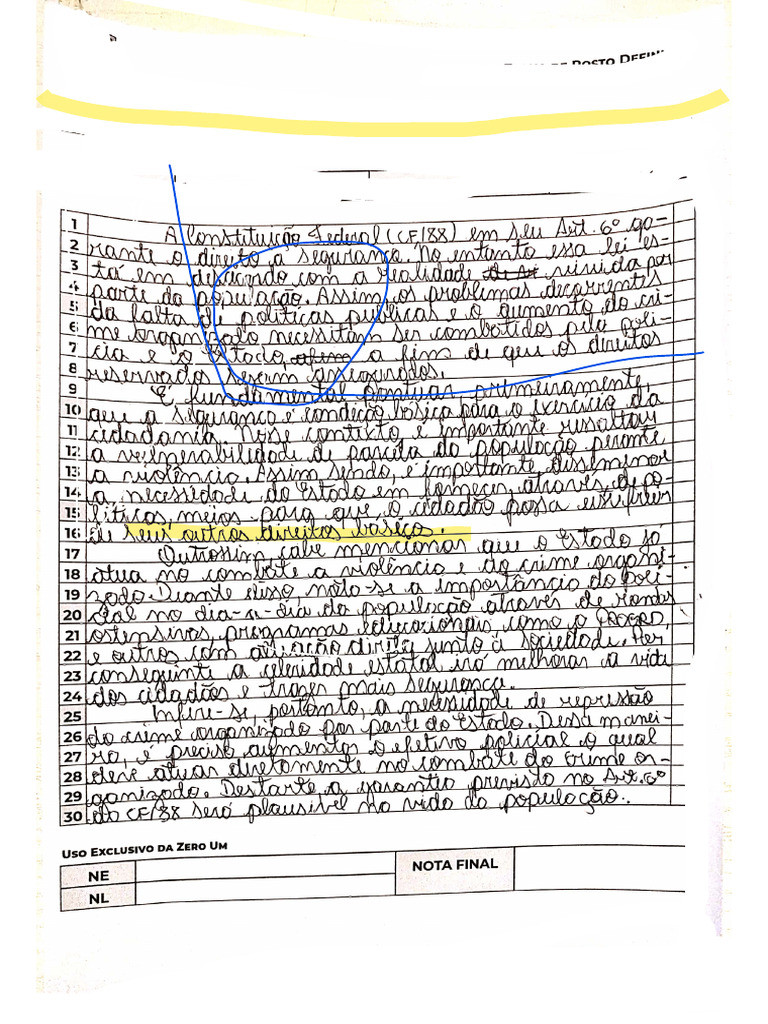 DE POSTO DEFINI
1 A Constituição Federal (CF/88) em seu Art. 6º ga-
2 rante o direito a segurança. No entanto essa lei es-
3 tá em desacordo com a realidade vivida por
4 parte da população. Assim, os problemas decorrentes
5 da falta de políticas públicas e o aumento do cri-
6 me organizado necessitam ser combatidos pela polí-
7 cia e o Estado, a fim de que os direitos
8 reservados sejam assegurados.
9 É fundamental pontuar, primeiramente,
10 que a segurança é condição básica para o exercício da
11 cidadania. Nesse contexto é importante ressaltar
12 a vulnerabilidade de parcela da população perante
13 a violência. Assim sendo, é importante disseminar
14 a necessidade do Estado em fornecer, através de po-
15 líticas, meios para que o cidadão possa usufruir
16 de seus outros direitos básicos.
17 Outrossim cabe mencionar que o Estado já
18 atua no combate a violência e do crime organi-
19 zado. Diante disso, nota-se a importância do poli-
20 cial no dia-a-dia da população através de rondas
21 ostensivas, programas educacionais como o PROERD,
22 e outros com atuação direta junto à sociedade. Por
23 conseguinte a celeridade estatal irá melhorar a vida
24 dos cidadãos e trazer mais segurança.
25 Infire-se, portanto, a necessidade de repressão
26 do crime organizado por parte do Estado. Dessa manei-
27 ra, é preciso aumentar o efetivo policial o qual
28 deve atuar diretamente no combate do crime or-
29 ganizado. Destarte a garantia prevista no Art. 6º
30 da CF/88 será plausível na vida da população.
USO EXCLUSIVO DA ZERO UM
NE
NOTA FINAL
NL